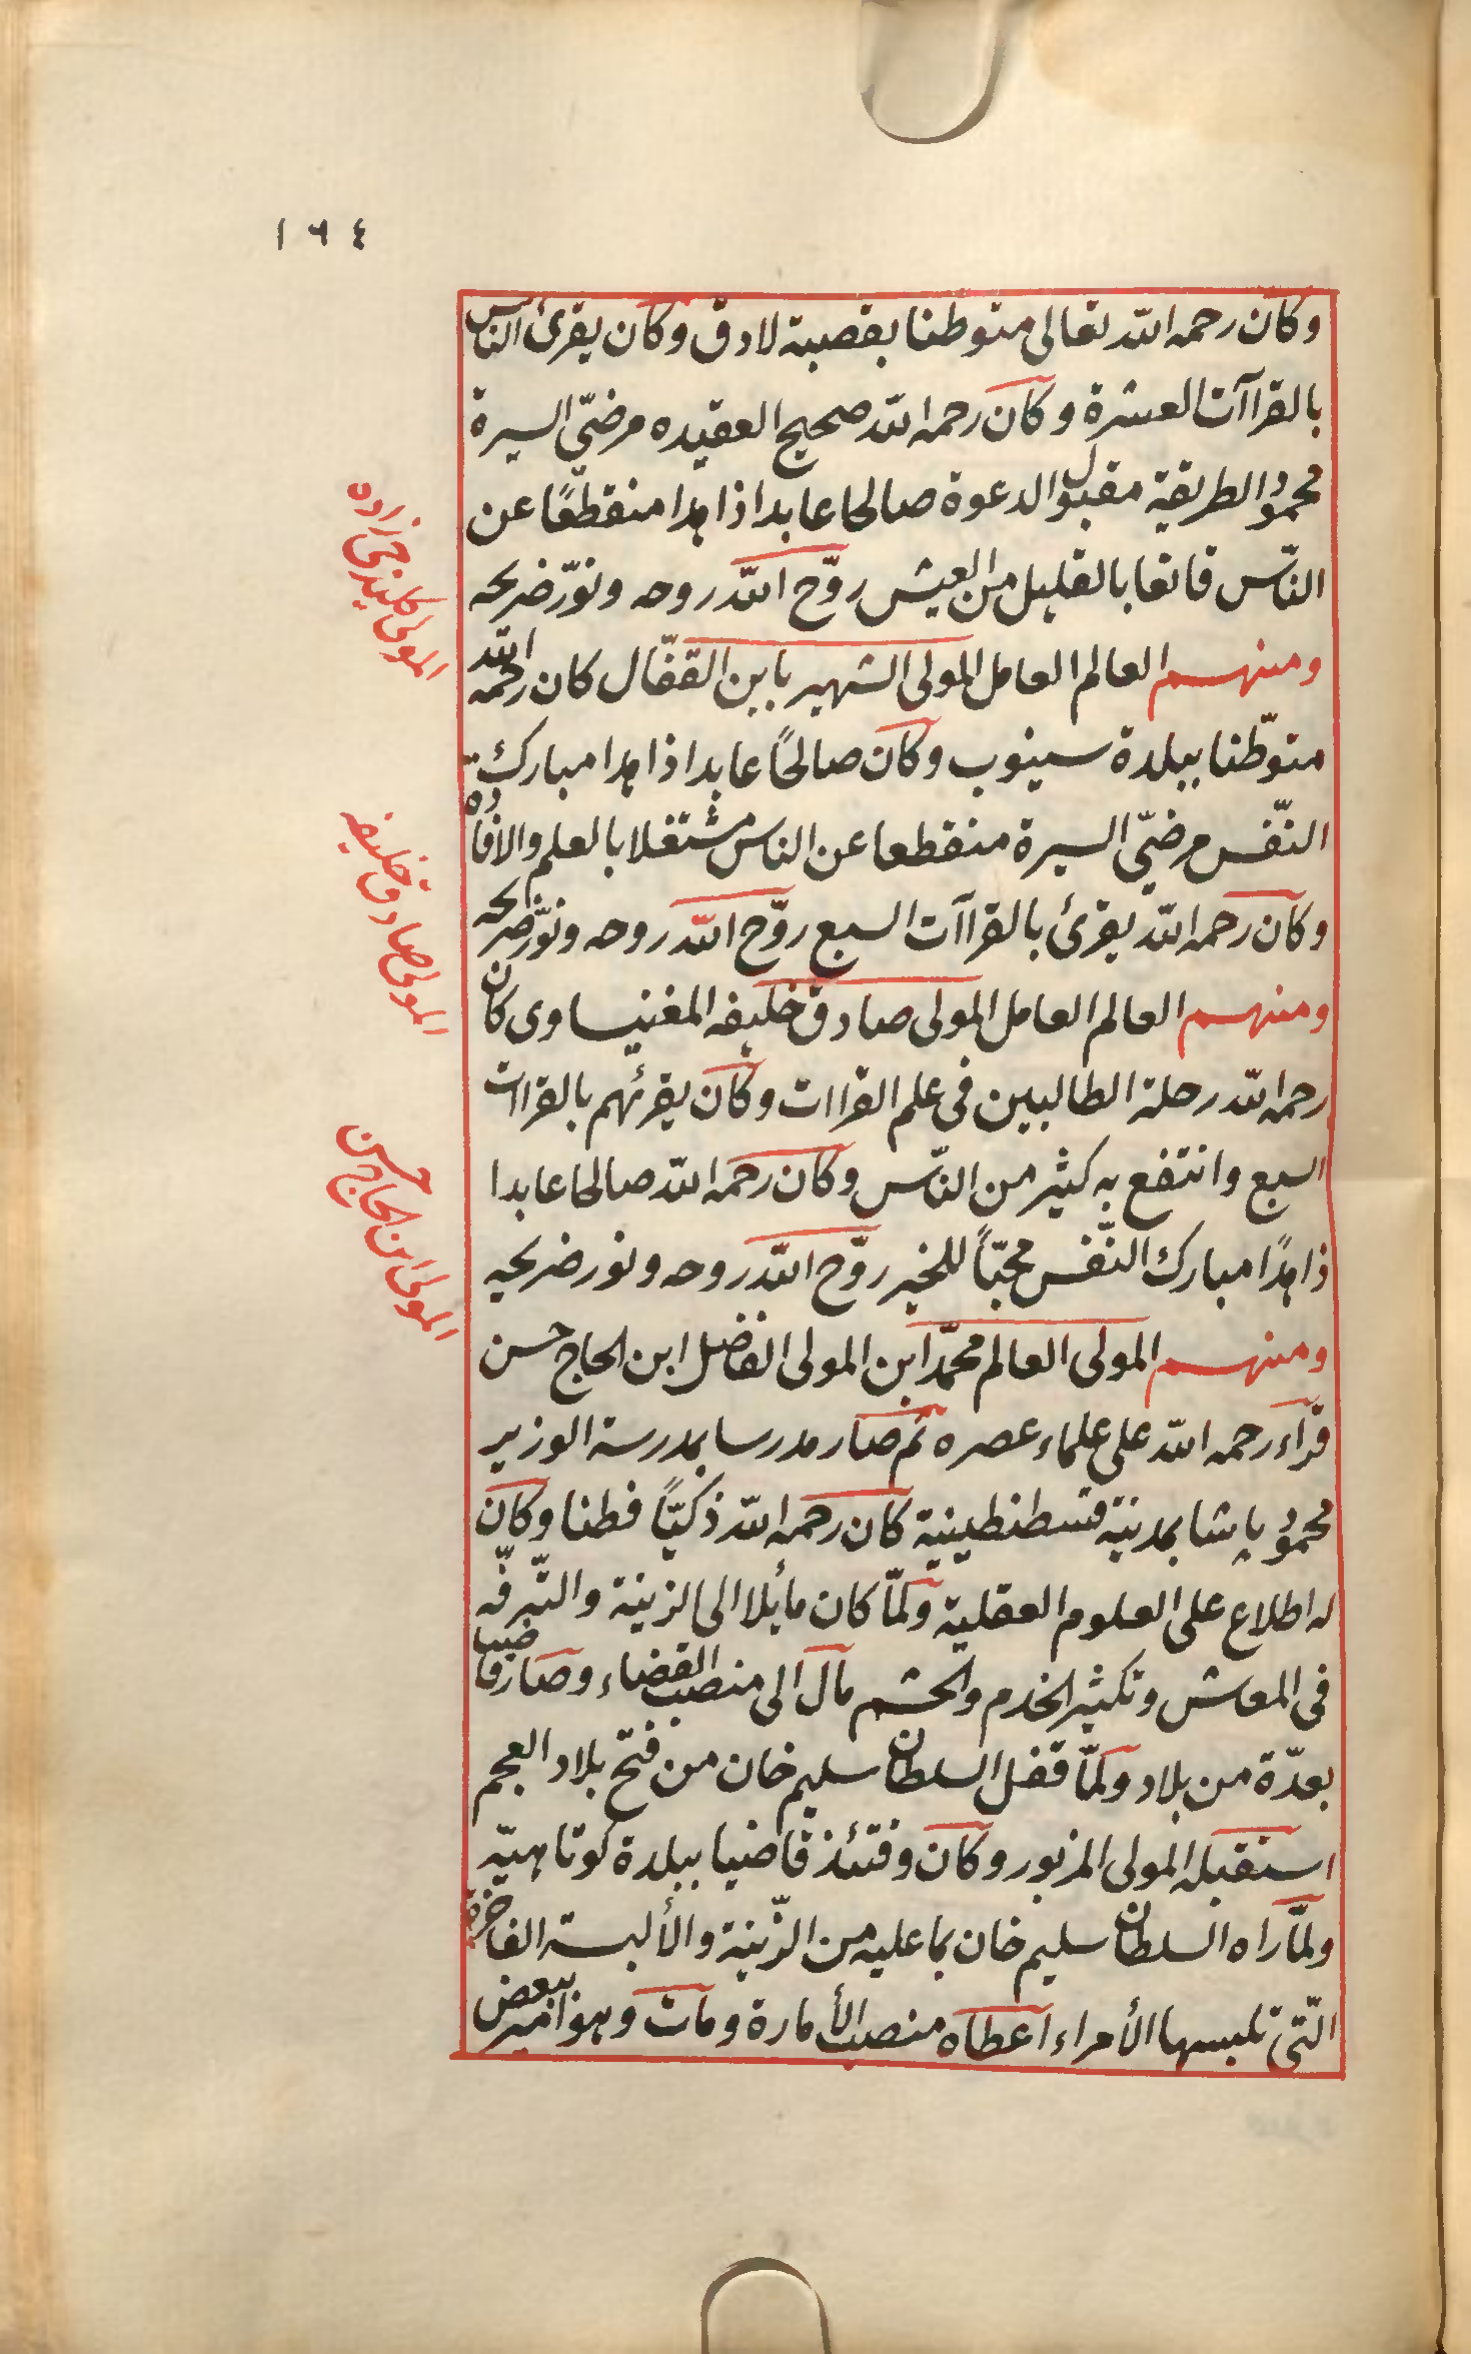 ١٦٤
وكان رحمه الله تعالى متوطنا بقصبة لادق وكان يقرئ الناس
بالقراآت العشرة وكان رحمه الله صحيح العقيده مرضيّ السيرة
محمود الطريقية مقبول الدعوة صالحا عابدا زاهدا منقطعًا عن
النّاس قانعا بالقليل من العيش روّح الله روحه ونوّر ضريحه
ومنهم العالم العامل المولى الشهير بابن القفّال كان رحمه الله
متوّطنا ببلدة سينوب وكان صالحًا عابدا زاهدا مبارك
النّفس مرضيّ السيرة منقطعا عن الناس مشتغلا بالعلم والافاده
وكان رحمه الله يقرئ بالقراآت السبع روّح الله روحه ونوّر ضريحه
ومنهم العالم العامل المولى صادق خليفه المغنيساوى كان
رحمه الله رحلة الطالبين فى علم القراات وكان يقرئهم بالقراات
السبع وانتفع به كثير من النّاس وكان رحمه الله صالحا عابدا
زاهدًا مبارك النّفس محبّاً للخير روّح الله روحه ونور ضريحه
ومنهم المولى العالم محمّد ابن المولى الفاضل ابن الحاج حسن
قرّاء رحمه الله على علماء عصره ثم صار مدرسا بمدرسة الوزير
محمود پاشا بمدينة قسطنطينية كان رحمه الله ذكيّاً فطنا وكان
له اطلاع على العلوم العقلية ولمّا كان مائلا الى الزينة والتّرفّه
فى المعاش وتكثير الخدم والحشم مال الى منصب القضاء وصار قاضيا
بعدّة من بلاد ولمّا قفل السلطان سليم خان من فتح بلاد العجم
استقبله المولى المزبور وكان وقتئذ قاضيا ببلدة كوتاهيّه
ولمّا راه السلطان سليم خان بما عليه من الزّينة والألبسة الفاخرة
الّتى تلبسها الأمراء اعطاه منصب الأمارة ومات وهو امير ببعض
المولى زاده
المولى صادق خليفه
المولى ابن الحاج حسن